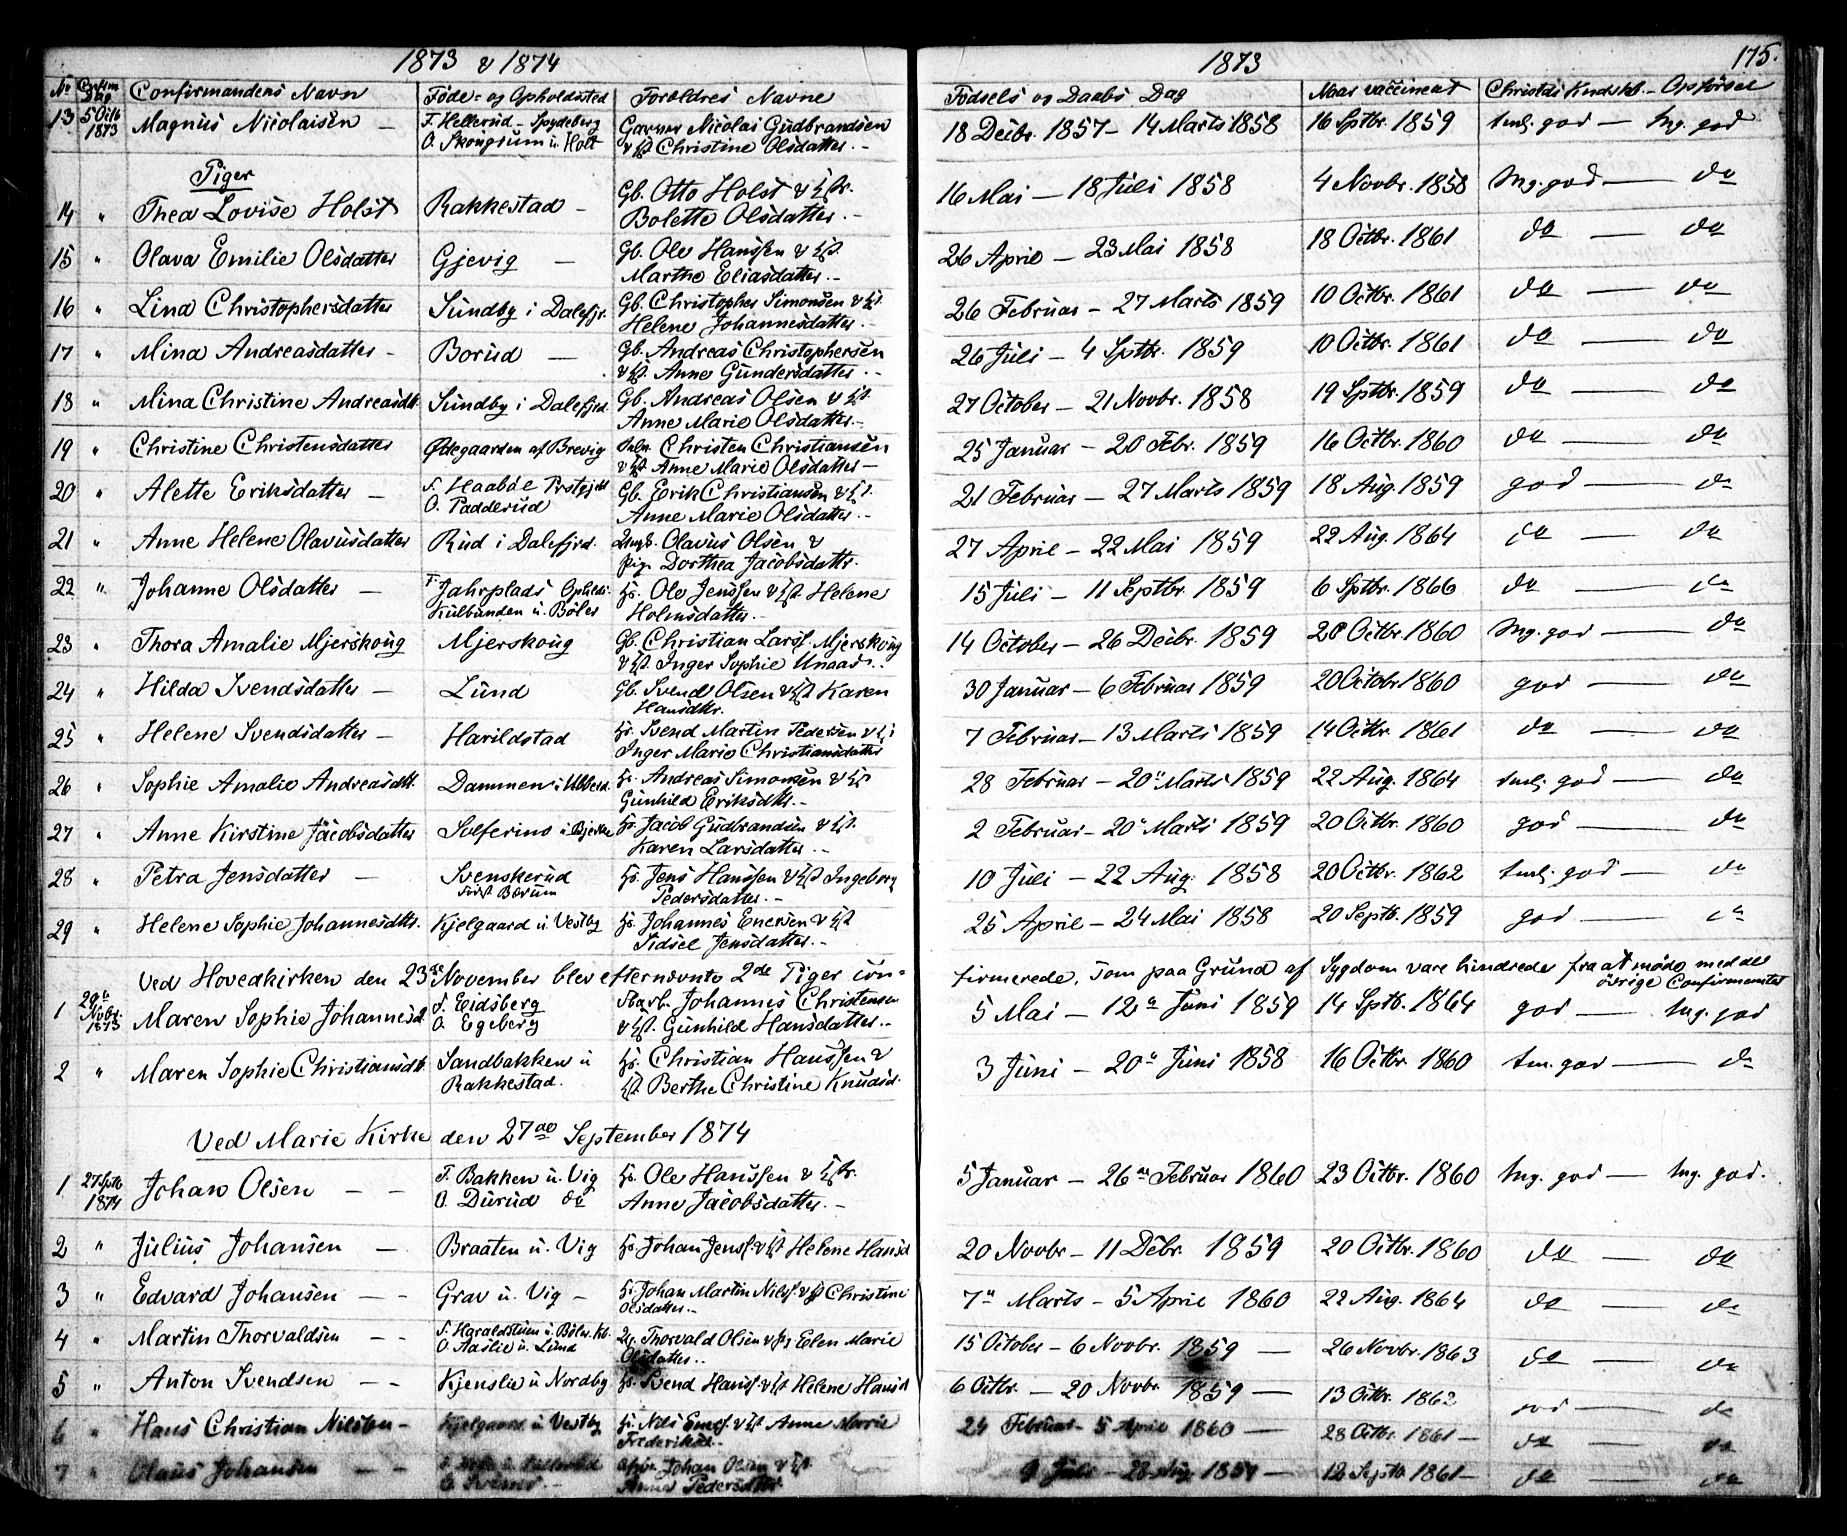 1873 & 1874
1873
175.
No Confirm. Dag Confirmandens Navn Føde- og Opholdssted Forældres Navne Fødsels og Daabs Dag Naar vaccineret Christds Kundskb. – Opførsel
13 5 Octb 1873 Magnus Nicolaisen – F. Hellerud – Spydeberg Garver Nicolai Gudbrandsen 18 Decbr. 1857 – 14 Marts 1858 16 Sptbr. 1859 tml. god – mg. god
O. Skougrum u. Holt & Hst Christine Olsdatter. –
Piger
14 " Thea Lovise Holst Rakkestad – Gb. Otto Holst & Hstr. 16 Mai – 18 Juli 1858 4 Novbr. 1858 mg. god – do
Bolette Olsdatter. –
15 " Olava Emilie Olsdatter Gjevig – Gb. Ole Hanssen & Hst. 26 April – 23 Mai 1858 18 Octbr. 1861 do – do
Marthe Eliasdatter. –
16 " Lina Christophersdatter Sundby i Dalefjr. Gb. Christopher Simonsen & Hst. 26 Februar – 27 Marts 1859 10 Octbr. 1861 do – do
Helene Johannesdatter. –
17 " Mina Andreasdatter – Borud – Gb. Andreas Christophersen 26 Juli – 4 Sptbr. 1859 10 Octbr. 1861 do – do
& Hst. Anne Gundersdatter. –
18 " Mina Christine Andreasdtr. Sundby i Dalefjrd. Gb. Andreas Olsen & Hst. 27 October – 21 Novbr. 1858 19 Sptbr. 1859 do – do
Anne Marie Olsdatter. –
19 " Christine Christensdatter Ødegaarden af Brevig Christen Christiansen 25 Januar – 20 Febr. 1859 16 Octbr. 1860 do – do
& Hst Anne Marie Olsdatter –
20 " Alette Eriksdatter – F. Haabøl Prstgjeld Gb. Erik Christiansen & Hst. 21 Februar – 27 Marts 1859 18 Aug. 1859 god – do
O. Padderud Anne Marie Olsdatter. –
21 " Anne Helene Olavusdatter Rud i Dalefjrd. Ungk. Olavus Olsen & 27 April – 22 Mai 1859 22 Aug. 1864 do – do
Pig. Dorthea Jacobsdatter.
22 " Johanne Olsdatter – F. Jahrplads Ophds. Hs. Ole Jenssen & Hst Helene 15 Juli – 11 Septbr. 1859 6 Sptbr. 1866 do – do
Kulbunden u. Bøler Holmsdatter. –
23 " Thora Amalie Mjerskoug Mjerskoug Gb. Christian Larss. Mjerskoug 14 October – 26 Decbr. 1859 20 Octbr. 1860 mg. god – do
& Hst. Inger Sophie
24 " Hilda Svendsdatter – Lund Gb. Svend Olsen & Hst Karen 30 Januar – 6 Februar 1859 20 Octobr 1860 god – do
Hansdtr.
25 " Helene Svendsdatter – Harildstad Hs. Svend Martin Pedersen & Hst 7 Februar – 13 Marts 1859 14 Octbr. 1861 do – do
Inger Marie Christiansdatter
26 " Sophie Amalie Andreasdtr. Dammen i Hs. Andreas Simonsen & Hst 28 Februar – 20de Marts 1859 22 Aug. 1864 tml. god – do
Gunhild Eriksdtr. –
27 " Anne Kirstine Jacobsdatter Solferino u. Bjerke Hs. Jacob Gudbrandsen & Hst. 2 Februar – 20 Marts 1859 20 Octbr. 1860 god – do
Karen Larsdatter. –
28 " Petra Jensdatter – Svenskerud Hs. Jens Hanssen & Hst Ingeborg 10 Juli – 22 Aug. 1858 20 Octbr. 1862 tml. god – do
Pedersdatter. –
29 " Helene Sophie Johannesdtr. Kjelgaard u. Vestby Hs. Johannes Enersen & Hst 25 April – 24 Mai 1858 20 Septb. 1859 god – do
Sidsel Jensdatter. –
Ved Hovedkirken den 23de November blev efternævnte 2de Piger con=firmerede, som paa Grund af Sygdom vare hindrede fra at møde med de
øvrige Confirmanter
1 Novbr. 1873 Maren Sophie Johannesd. F. Eidsberg Johannes Christensen 5 Mai – 12te Juni 1859 14 Sptb. 1864 god – mg. god
O. Egeberg & Hst. Gunhild Hansdatter. –
2 " Maren Sophie Christiansdtr. Sandbakken u Hs. Christian Hanssen & 3 Juni – 20de Juni 1858 16 Octbr. 1860 tm. god – do
Rakkestad. Hst Berthe Christine Knudsd.
Ved Marie Kirke den 27de September 1874
1 27 Sptb 1874 Johan Olsen – – F. Bakken u. Vig Hs. Ole Hanssen & Hstr. 5 Januar – 26de Februar 1860 23 Octbr. 1860 mg. god – mg. god.
O. Durud do Anne Jacobsdatter. –
2 " Julius Johansen – Braaten u. Vig Hs. Johan Jenss. & Hst Helene Hansd 20 Novbr – 11 Debr. 1859 20 Octbr. 1860 do – do
3 " Edvard Johansen – – Grav u. Vig – Hs. Johan Martin Nilss. & Hst Christine 7de Marts – 5 April 1860 22 Aug. 1864 do – do
Olsdatter. –
4 " Martin Thorvaldsen – – F. Haraldstuen u. Bøler Ug. Thorvald Olsen & Pig Eelen Marie 15 October – 6 Novbr. 1859 – 26 Novbr. 1863 do – do
O. Aaslie u. Lund Olsdatter.
5 " Anton Svendsen – – Kjenslie u Nordby Hs. Svend Hanss. & Hst Helene Hansd 6 Octbr. – 20 Novbr. 1859 – 13 Octbr. 1862 god – do
6 " Hans Christian Nilsen – Kjelgaard u Vestby Hs. Nils & Hst Anne Marie 24 Februar – 5 April 1860 – 28 Octbr. 1861 – do – do
7 " Olaus Johansen – – Johan Olsen & Hst 9 Juli – 28 Aug. 1859 – 12 Septb 1861 – do – do
Pedersdatter